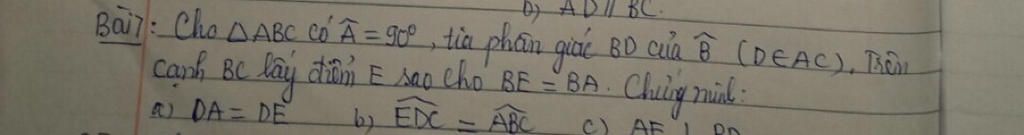 b) AD // BC.
Bài 7: Cho △ABC có Â = 90°, tia phân giác BD của B̂ (D∈AC). Trên
cạnh BC lấy điểm E sao cho BE = BA. Chứng minh:
a) DA = DE b) \widehat{EDC} = \widehat{ABC} c) AE ⊥ BD